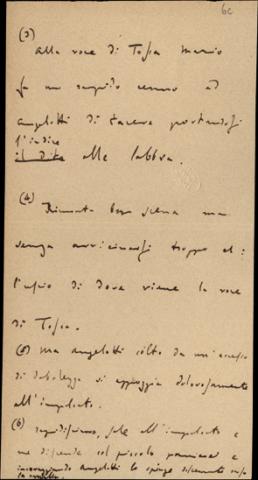 6c
(3)
alla voce di Tosca Mario
fa un rapido cenno ad
Angelotti di tacere portandosi
l'indice
il dito alle labbra.
(4)
Rimonta la scena ma
senza avvicinarsi troppo al:
l'uscio di dove viene la voce
di Tosca.
(5) Ma Angelotti côlto da un'accesso
di debolezza si appoggia dolorosamente
all'impalcato.
(6) rapidissimo, sale all'impalcato e
ne discende col piccolo paniere e
incoraggiando Angelotti lo spinge